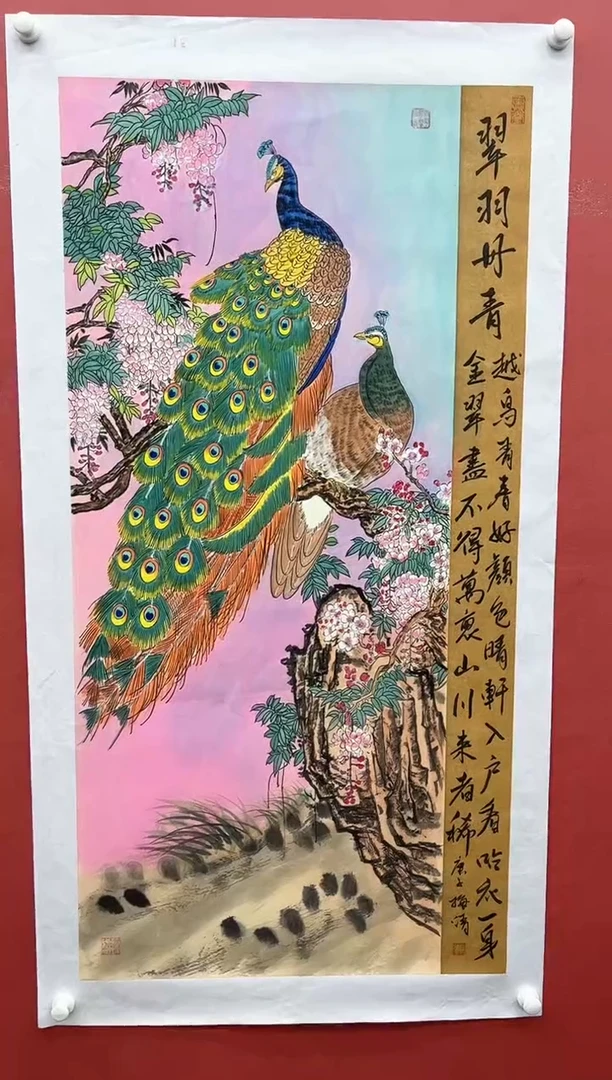 翠羽丹青
越鸟青春好顏色晴軒入户看呫衣一身
金翠盡不得萬裏山川来者稀
庚子梅清